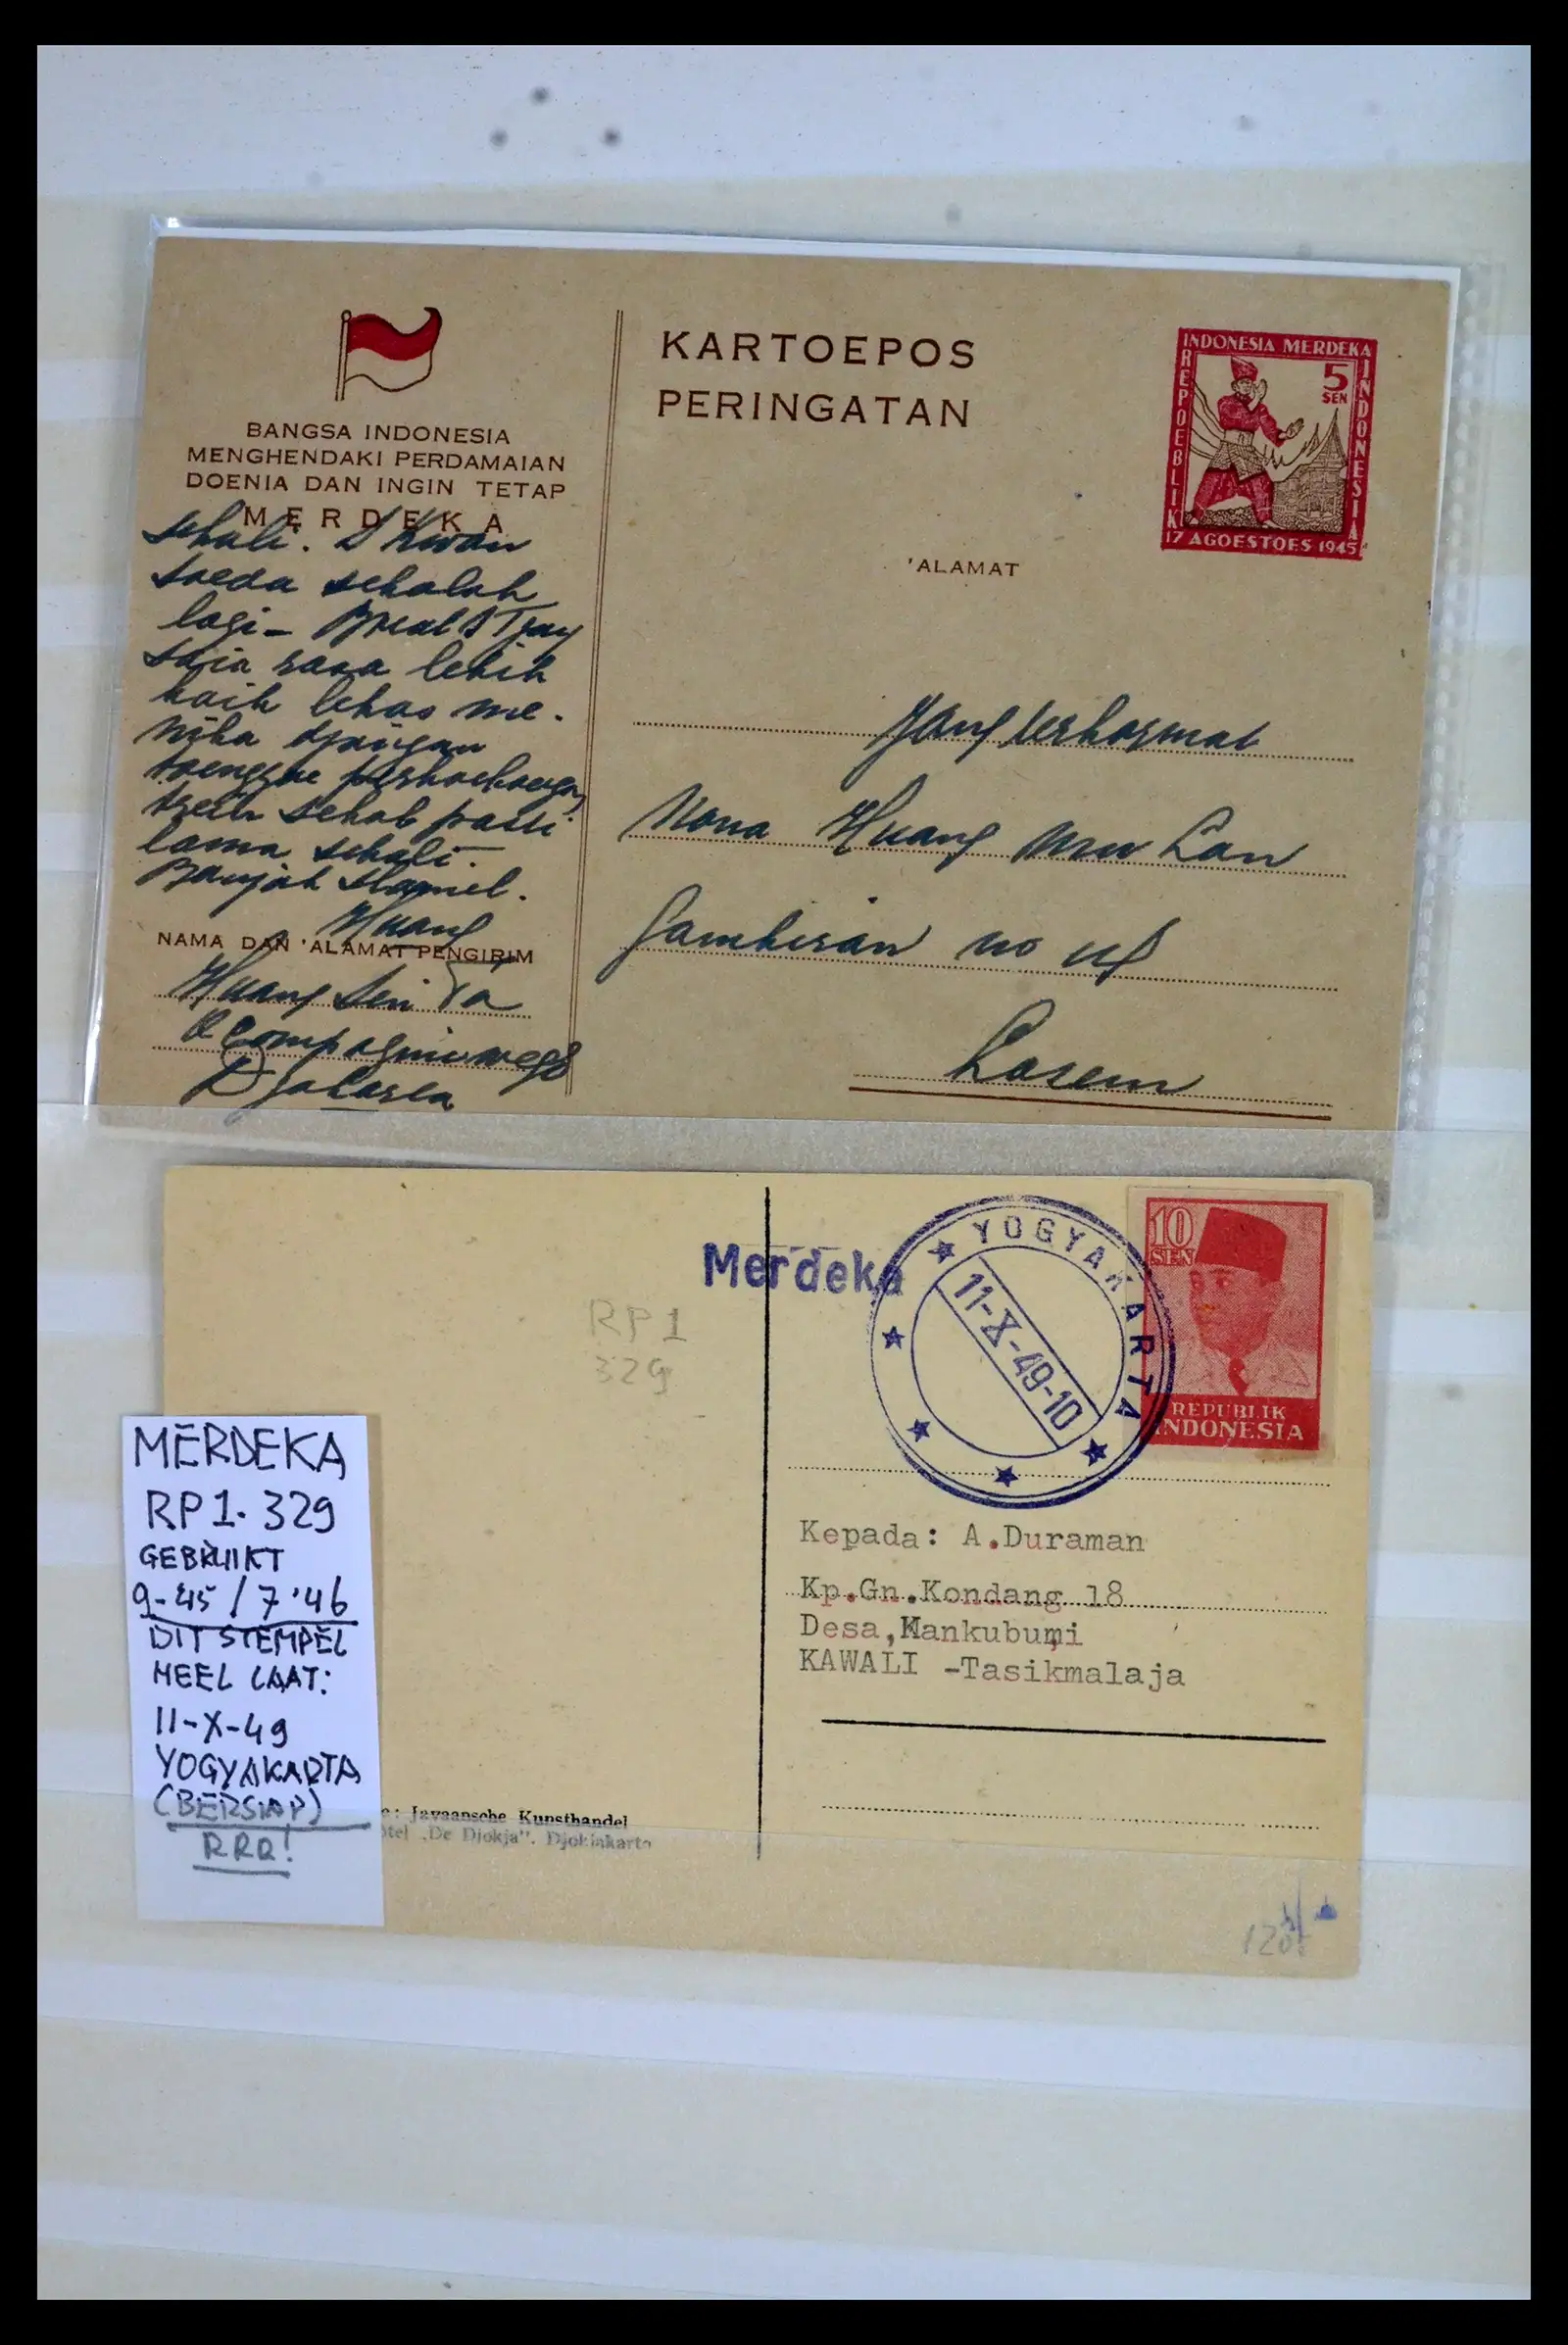 BANGSA INDONESIA
MENGHENDAKI PERDAMAIAN
DOENIA DAN INGIN TETAP
MERDEKA
sekali. S Kwan
soeda sekolah
lagi -
saja rasa lebih
baik lekas me-
nika djangan
toenggoe
trein sebab pasti
lama sekali.
Banjak slamet.
Huang
NAMA DAN 'ALAMAT PENGIRIM
Huang Sen
Compagnieweg
Djakarta
KARTOEPOS
PERINGATAN
INDONESIA MERDEKA
REPOEBLIK
INDONESIA
5
SEN
17 AGOESTOES 1945
'ALAMAT
Jang terhormat
Nona Huang Mu Lan
Gambiran no
Lasem
Merdeka
YOGYAKARTA
11-X-49-10
10
SEN
REPUBLIK
INDONESIA
RP1
329
Kepada: A.Duraman
Kp.Gn.Kondang 18
Desa,Mankubumi
KAWALI -Tasikmalaja
MERDEKA
RP1. 329
GEBRUIKT
9-45/7'46
DIT STEMPEL
HEEL LAAT:
11-X-49
YOGYAKARTA
(BERSIAP)
RRR!
e: Javaansche Kunsthandel
otel „De Djokja". Djokjakarta